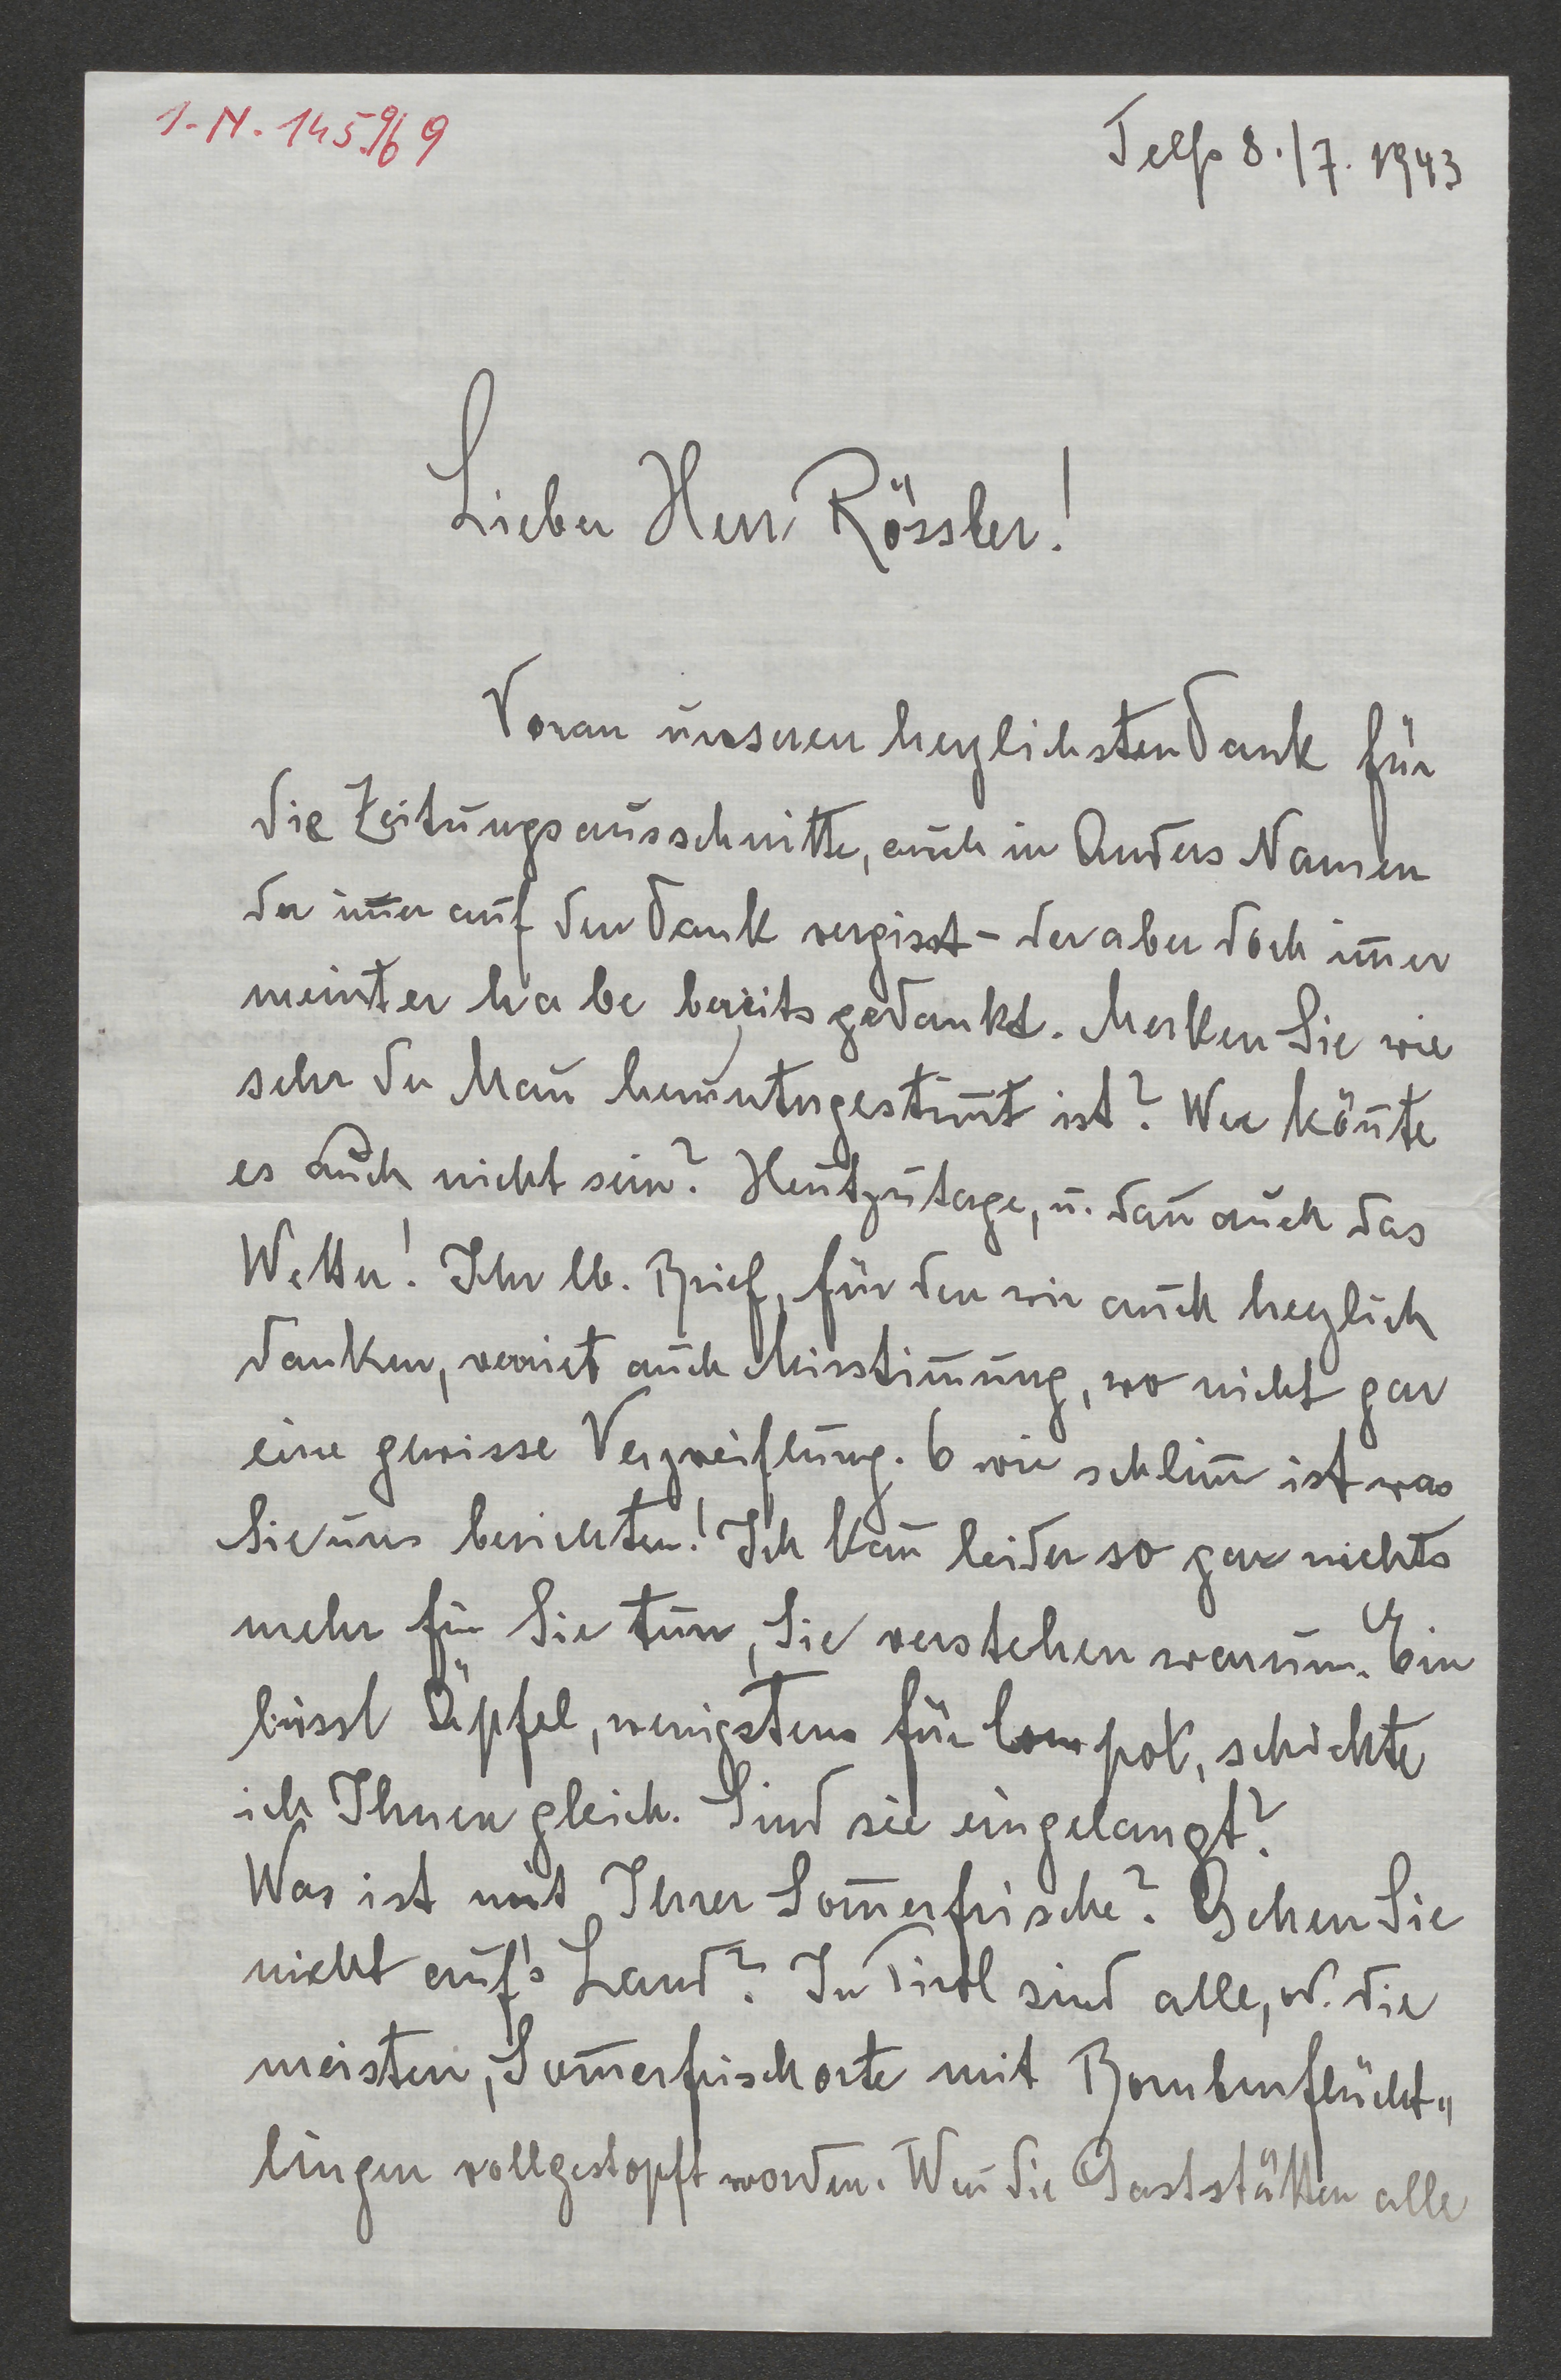 I.N. 145.969
Telfs 8./7. 1943
Lieber Herr Rössler!
Voran unseren herzlichsten Dank für
die Zeitungsausschnitte, auch in Anders Namen
der im̄er auf den Dank vergisst – der aber doch im̄er
meint er habe bereits gedankt. Merken Sie wie
sehr der Man̄ heruntergestim̄t ist? Wer kön̄te
es auch nicht sein? Heutzutage, u. dan̄ auch das
Wetter! Ihr lb. Brief, für den wir auch herzlich
danken, verriet auch Misstim̄ung, wo nicht gar
eine gewisse Verzweiflung. O wie schlim̄ ist was
Sie uns berichten! Ich kan̄ leider so gar nichts
mehr für Sie tun, Sie verstehen warum. Ein
bissl Äpfel, wenigstens für Compot, schickte
ich Ihnen gleich. Sind sie eingelangt?
Was ist mit Ihrer Som̄erfrische? Gehen Sie
nicht auf's Land? In Tirol sind alle, od. die
meisten, Som̄erfrischorte mit Bombenflücht„
lingen vollgestopft worden. Wen̄ die Gaststätten alle